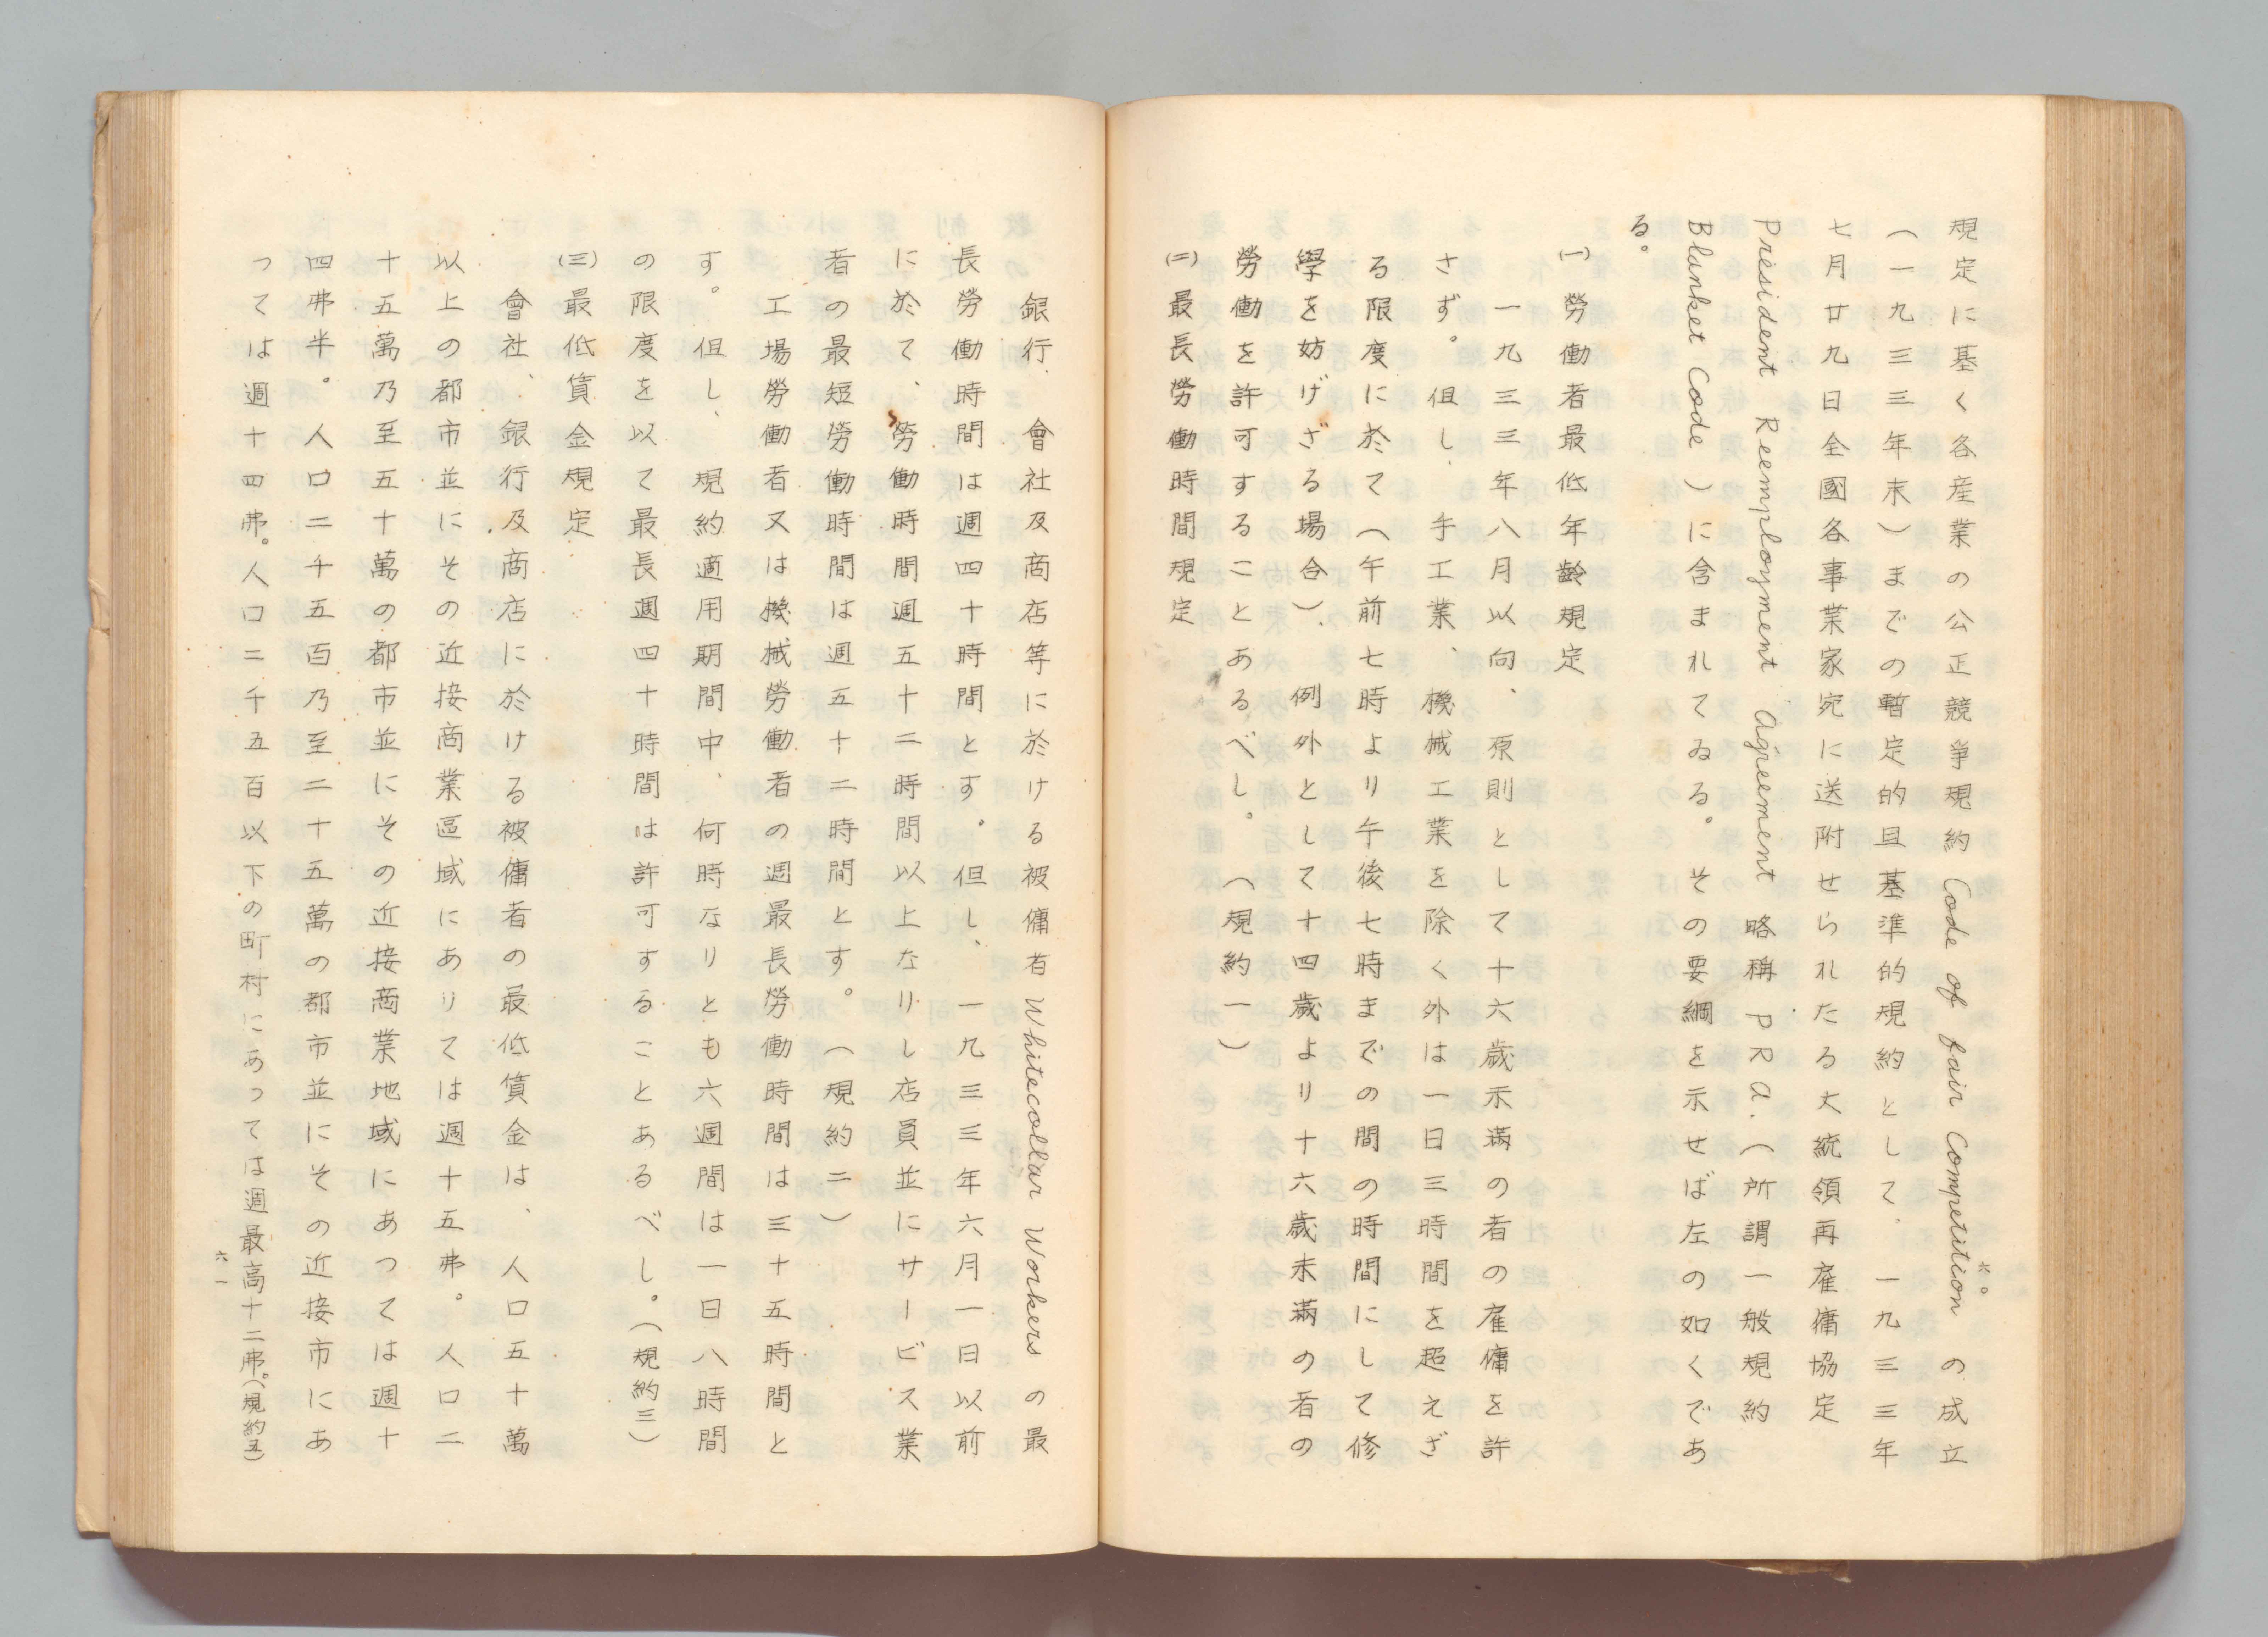 規定に基く各産業の公正競爭規約 Code of fair Competition の成立
(一九三三年末)までの暫定的且基準的規約として、一九三三年
七月廿九日全國各事業家宛に送附せられたる大統領再雇傭協定
President Reemployment Agreement 略稱 PRA.(所謂一般規約
Blanket Code)に含まれてゐる。その要綱を示せば左の如くであ
る。
(一)勞働者最低年齡規定
一九三三年八月以向、原則として十六歲未滿の者の雇傭を許
さず。但し、手工業、機械工業を除く外は一日三時間を超えざ
る限度に於て(午前七時より午後七時までの間の時間にして修
學を妨げざる場合)、例外として十四歲より十六歲未滿の者の
勞働を許可することあるべし。(規約一)
(二)最長勞働時間規定
六〇
銀行、會社及商店等に於ける被傭者 Whitecollar Workers の最
長勞働時間は週四十時間とす。但し、一九三三年六月一日以前
に於て、勞働時間週五十二時間以上なりし店員並にサービス業
者の最短勞働時間は週五十二時間とす。(規約二)
工場勞働者又は機械勞働者の週最長勞働時間は三十五時間と
す。但し、規約適用期間中、何時なりとも六週間は一日八時間
の限度を以て最長週四十時間は許可することあるべし。(規約三)
(三)最低賃金規定
會社、銀行及商店に於ける被傭者の最低賃金は、人口五十萬
以上の都市並にその近接商業區域にありては週十五弗。人口二
十五萬乃至五十萬の都市並にその近接商業地域にあつては週十
四弗半。人口二千五百乃至二十五萬の都市並にその近接市にあ
つては週十四弗。人口二千五百以下の町村にあつては週最高十二弗。(規約五)
六一